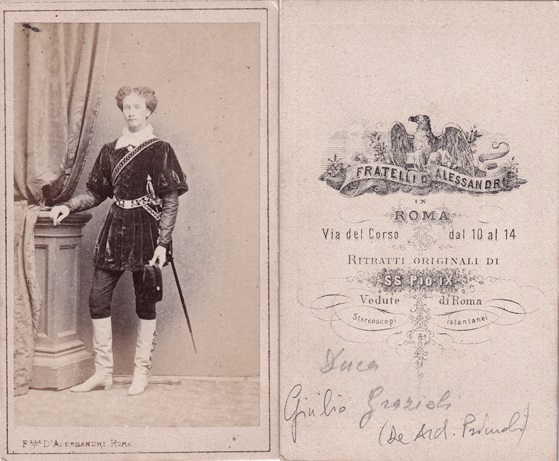 F.lli D'ALESSANDRI ROMA
FRATELLI D'ALESSANDRI
IN
ROMA
Via del Corso dal 10 al 14
RITRATTI ORIGINALI DI
SS PIO IX
Vedute di Roma
Stereoscopi istantanei
Duca
Giulio Grazioli
(De Ard. Primoli)